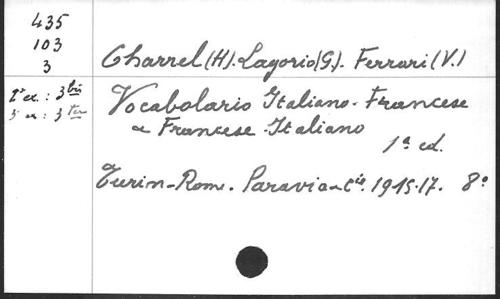 435
103
3
2e ex. : 3 bis
3e ex. : 3 ter
Charrel (H). Lagorio (G). Ferrari (V.)
Vocabolario Italiano-Francese
e Francese-Italiano
1a ed.
Turin-Rome. Paravia & Cie. 1915-17. 8°